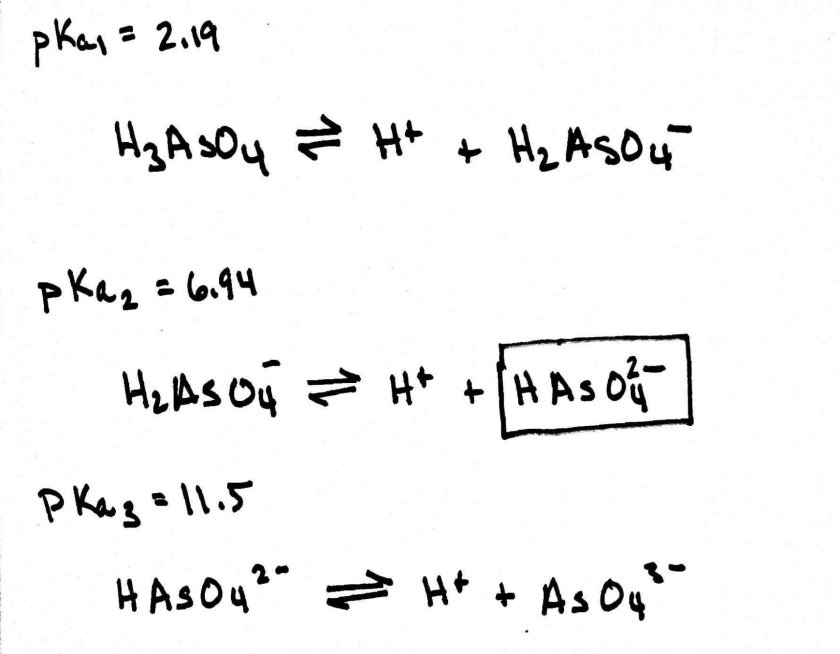 pKa₁ = 2.19
H₃AsO₄ ⇌ H⁺ + H₂AsO₄⁻
pKa₂ = 6.94
H₂AsO₄⁻ ⇌ H⁺ + HAsO₄²⁻
pKa₃ = 11.5
HAsO₄²⁻ ⇌ H⁺ + AsO₄³⁻